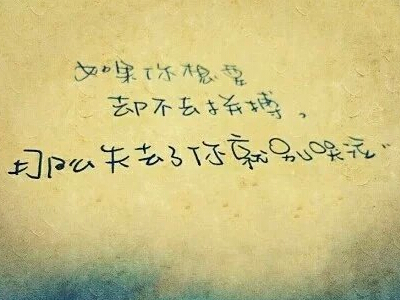 如果你想要
却不去拼搏，
那么失去了你就别哭泣